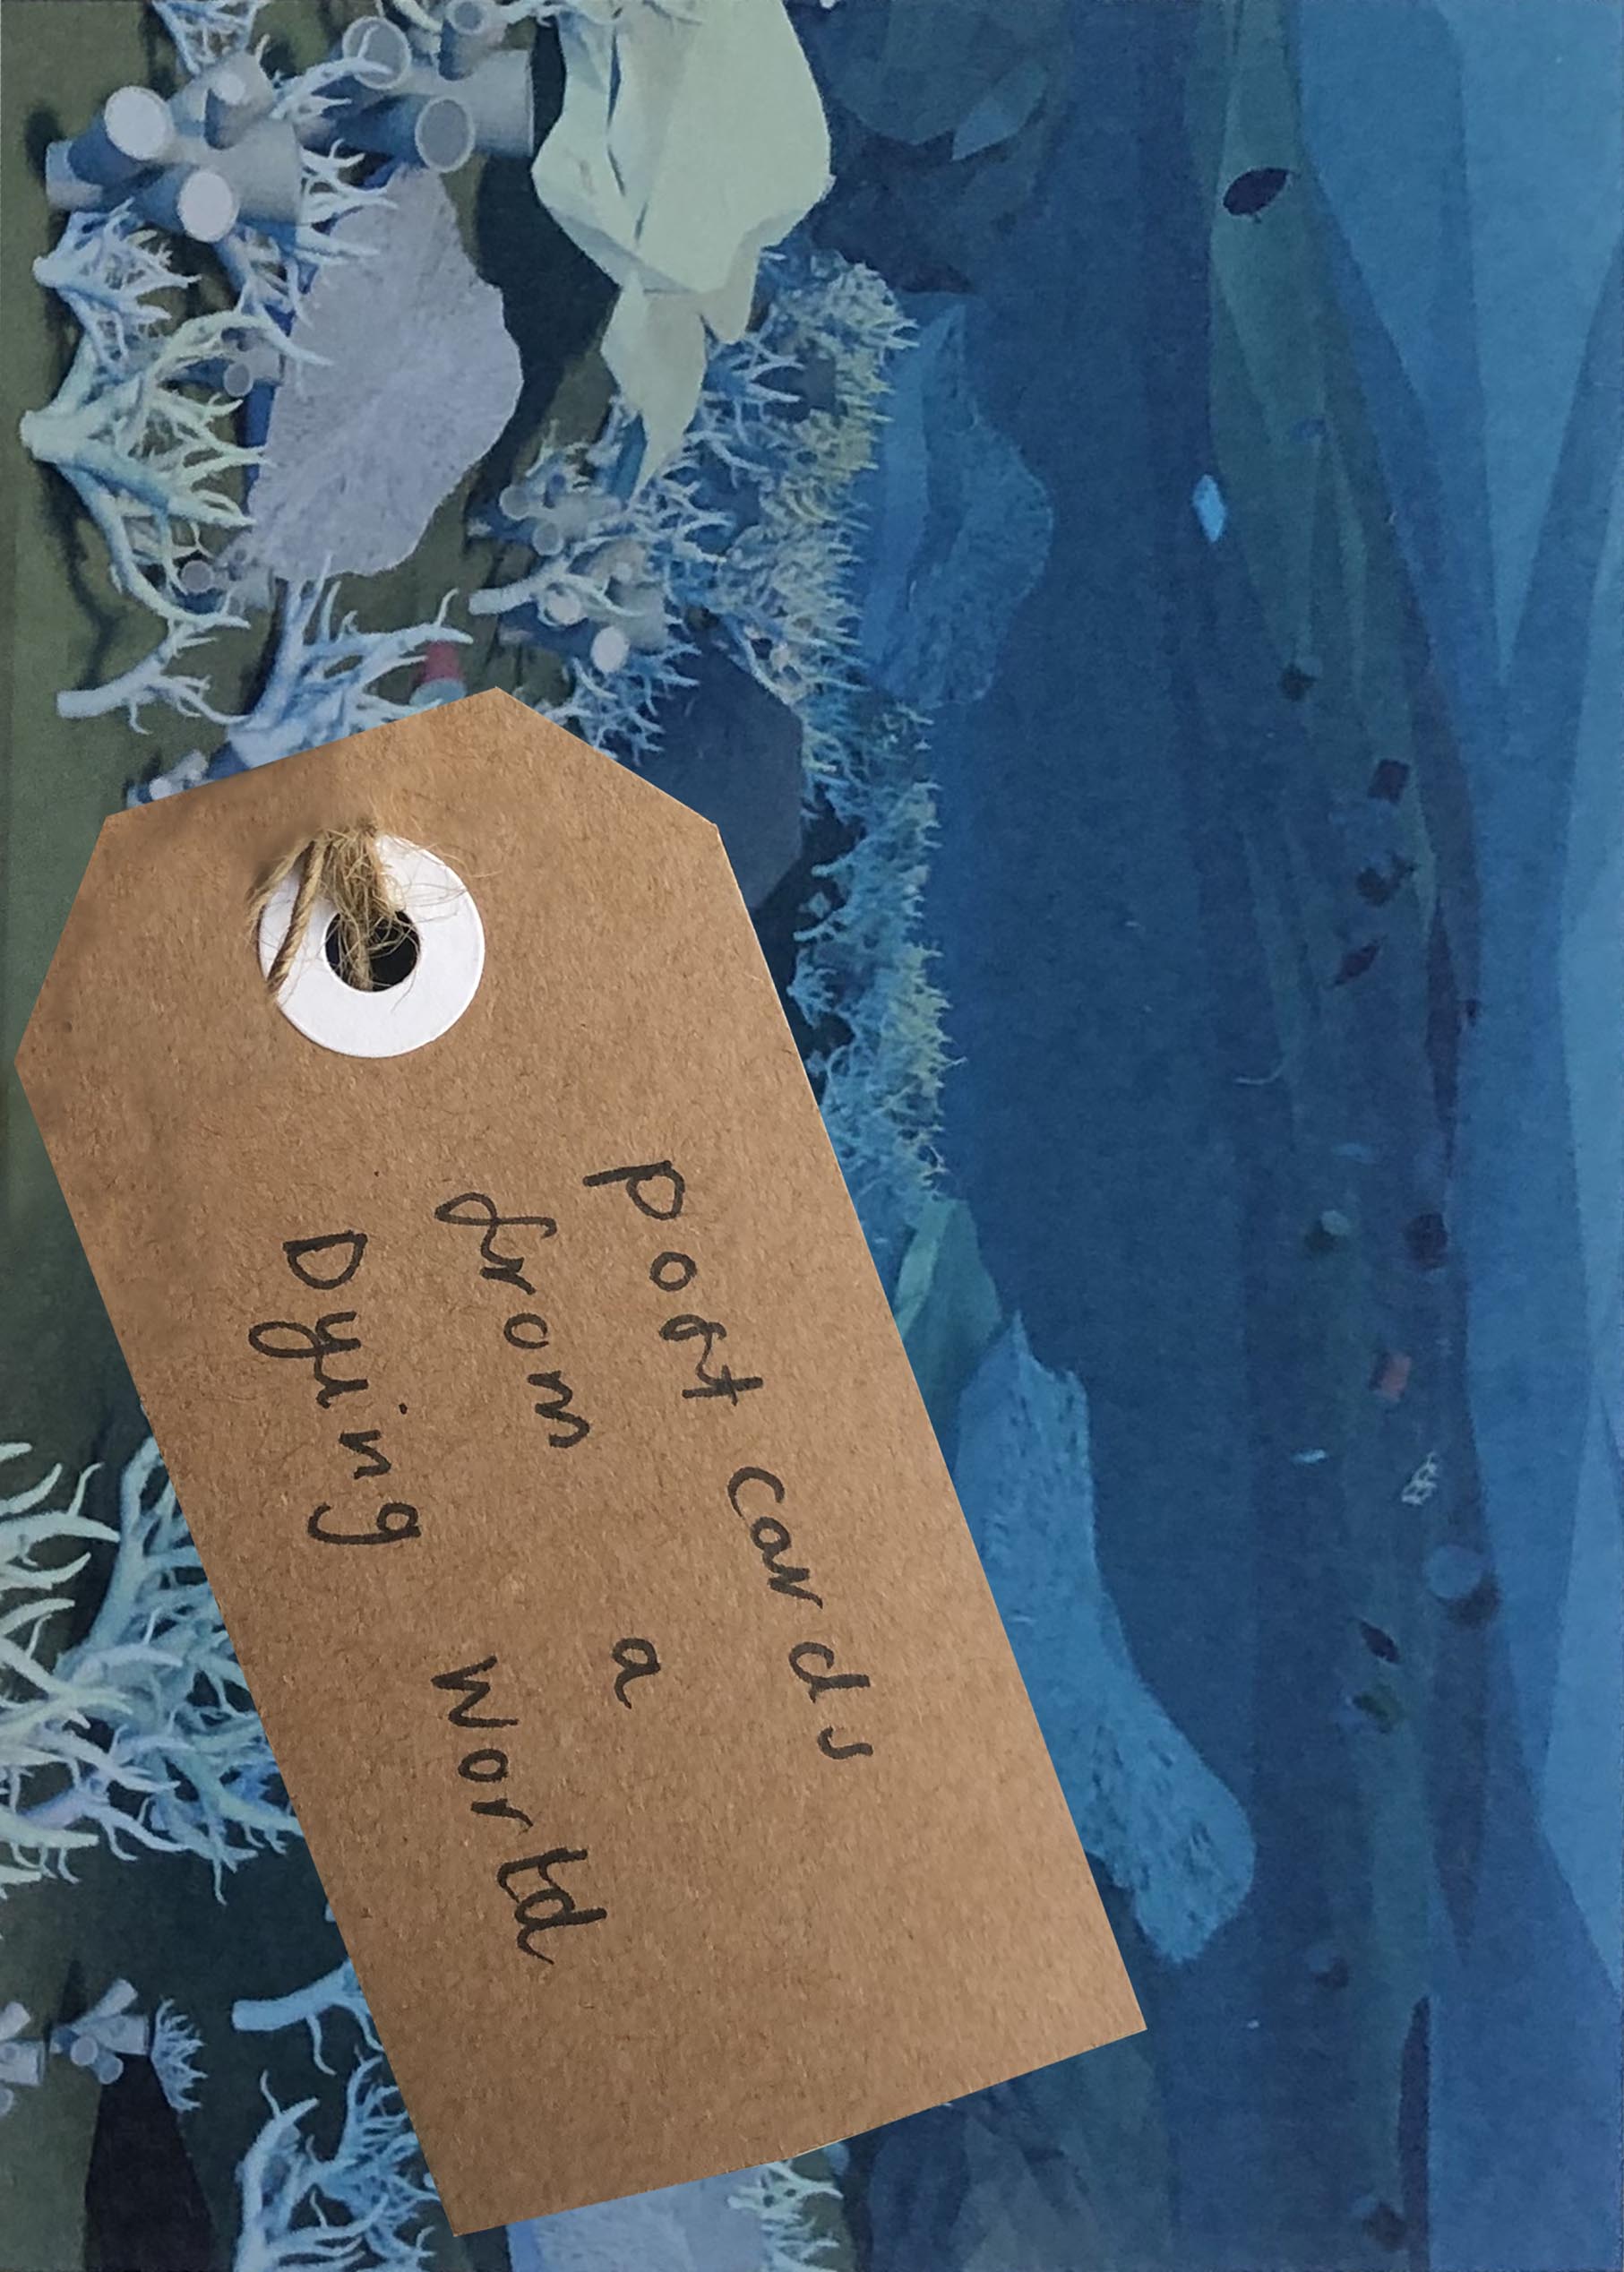 Post cards
from a
Dying World